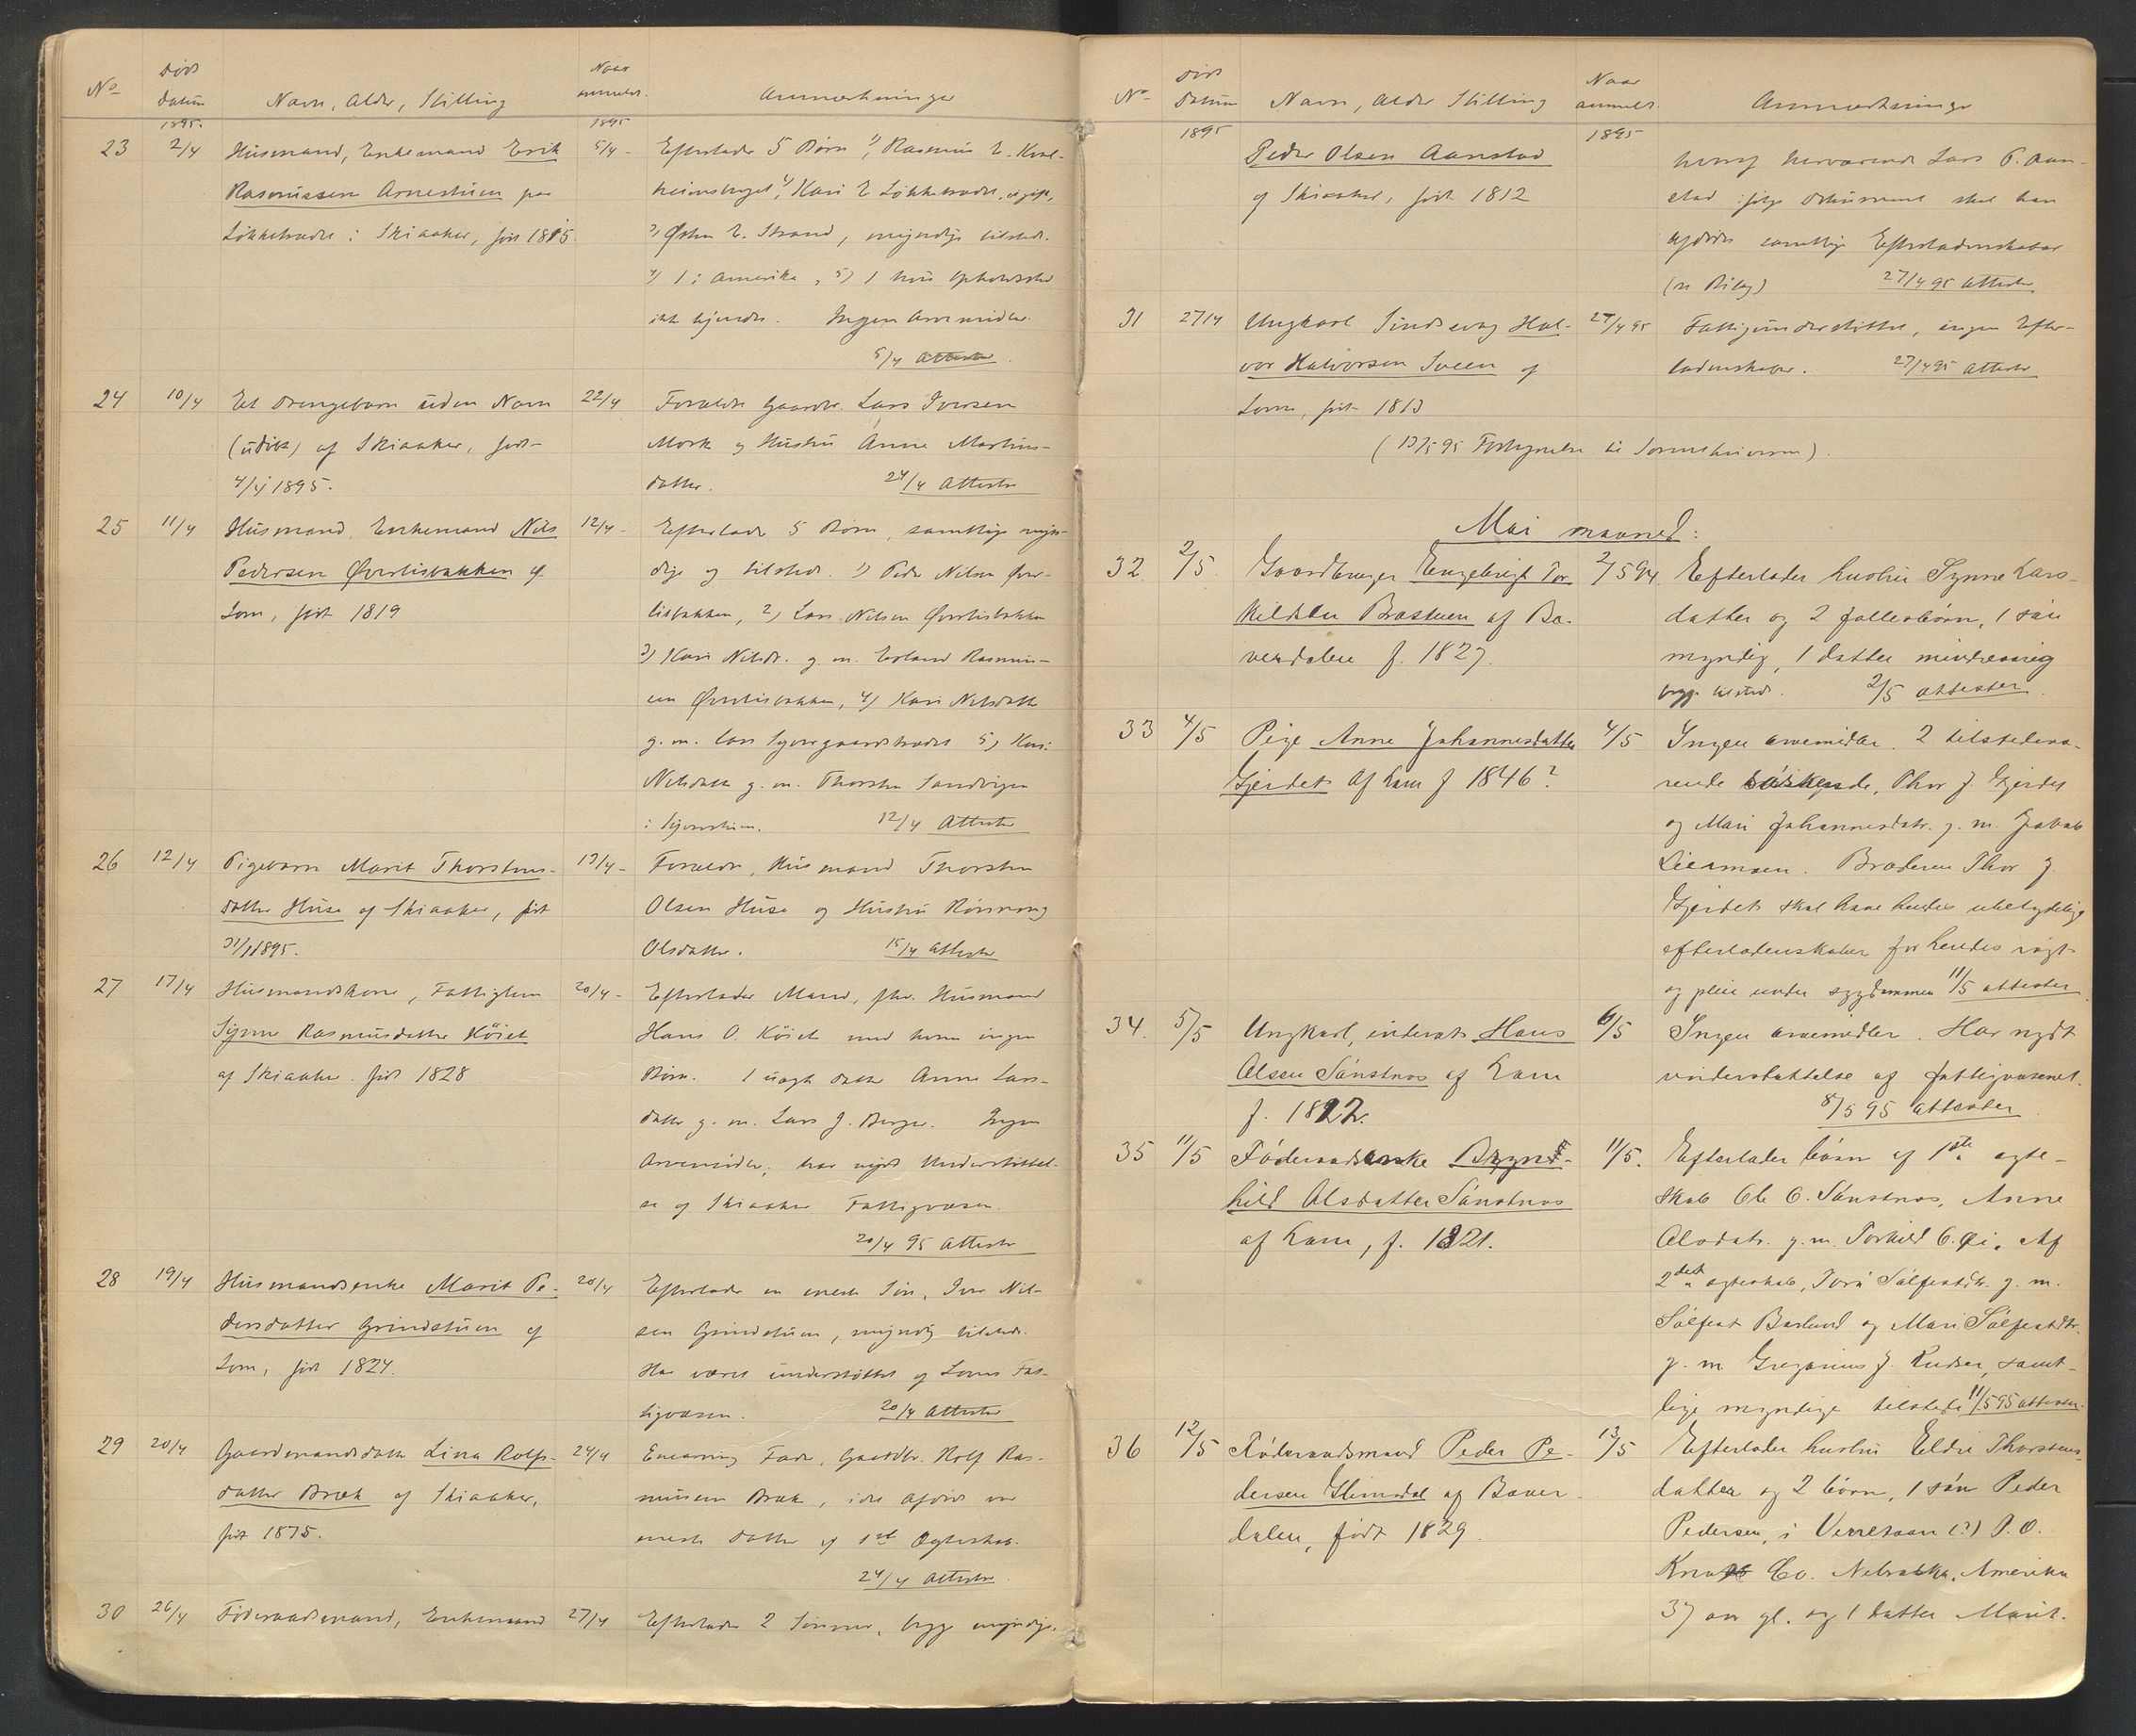 No
Døds
Datum
Navn, Alder, Stilling
Naar
anmeldt.
Anmærkninger
1895.
1895
23
2/4
Husmand, Enkemand Erik
5/4 -
Efterlader 5 Børn 1) Rasmus E. Kvil-
Rasmussen Arnestuen paa
2) Kari E Løkkebrædet, ugift,
Løkkebrædet i Skiaaker, født 1815.
3) Østen E. Strand, myndige tilstede.
4) 1 i Amerika, 5) 1 hvis Opholdssted
ikke kjendes. Ingen Arvemidler.
5/4 Attester
24
10/4
Et Drengebarn uden Navn
22/4
Forældre Gaardbr. Lars Iversen
(udøbt) af Skiaaker, født
Mork og Hustru Anne Mathias-
4/4 1895.
datter.
24/4 Attester
25
11/4
Husmand, Enkemand Nils
12/4 -
Efterlader 5 Børn, samtlige myn-
Pedersen Øvrelisbakken af
dige og tilstede. 1) Peder Nilsen Øvre-
Lom, født 1819
lisbakken, 2) Lars Nilsen Øvrelisbakken
3) Kari Nilsdr. g. m. Erland Rasmus-
sen Øvrelisbakken, 4) Kari Nilsdatter
g. m. Lars 5) Kari
Nilsdatter g. m. Thorsten Sandvigen
12/4 Attester
26
12/4
Pigebarn Marit Thorstens-
13/4 -
Forældre, Husmand Thorsten
datter Huse af Skiaaker, født
Olsen Huse og Hustru Rønnaug
31/1 1895.
Olsdatter.
15/4 Attester
27
17/4
Husmandskone, Fattiglem
20/4 -
Efterlader Mand, fhv. Husmand
Synne Rasmusdatter Køiet
Hans O. Køiet med hvem ingen
af Skiaaker. født 1828
Børn. 1 uægte Datter Anne Lars-
datter g. m. Lars J. Berger. Ingen
Arvemidler, har nydt Understøttel-
se af Skiaaker Fattigvæsen.
20/4 95 Attester
28
19/4
Husmandsenke Marit Pe-
20/4
Efterlader en eneste Søn, Iver Nil-
dersdatter Grindstuen af
sen Grindstuen, myndig tilstede.
Lom, født 1824.
Har været understøttet af Loms Fat-
tigvæsen.
20/4 Attester
29
20/4
Gaardmandsdatter Lina Rolfs-
24/4
Enearving Fader, Gaardbr. Rolf Ras-
datter Bræk af Skiaaker,
mussen Bræk, idet Afdøde var
født 1875.
eneste Datter af 1ste Ægteskab.
24/4 Attester
30
26/4
Føderaadsmand, Enkemand
27/4
Efterlader 2 Sønner, begge myndige,
No
Døds
Datum
Navn, Alder Stilling
Naar
anmeldt.
Anmærkninger
1895
1895
Peder Olsen Aanstad
hvoraf herværende Lars P. Aan-
af Skiaaker, født 1812
stad ifølge Dokument skal have
afdødes samtlige Efterladenskaber
(se Bilag)
27/4 95 Attester
31
27/4
Ungkarl Sindssvag Hal-
27/4 95
Fattigunderstøttet, ingen Efter-
vor Halvorsen Sveen af
ladenskaber.
27/4 95 Attester
Lom, født 1813
(13/5 95 Fortegnelse til Sorenskriveren).
Mai maaned:
32
2/5
Gaardbruger Engebrigt Tor-
2/5 94
Efterlader hustru Synne Lars-
kildsen Brastuen af Bø-
datter og 2 fællesbørn, 1 søn
verdalen f. 1827.
myndig, 1 datter mindreaarig
begge tilstede.
2/5 attester
33
4/5
Pige Anne Johannesdatter
4/5
Ingen arvemidler. 2 tilstedevæ-
Gjeidet af Lom f 1846?
rende søskende, Thor J. Gjeidet
og Mari Johannesdtr. g. m. Jakob
Lieamoen. Broderen Thor J.
Gjeidet skal have hendes ubetydelige
efterladenskaber for hendes røgt
og pleie under sygdommen 11/5 attester
34.
5/5
Ungkarl, inderst Hans
6/5
Ingen arvemidler. Har nydt
Olsen Sønstnes af Lom
understøttelse af fattigvæsenet.
f. 1822.
8/5 95 attester
35
11/5
Føderaadsenke Brynd-
11/5.
Efterlader børn af 1ste ægte-
hild Olsdatter Sønstnes
skab Ole O. Sønstnes, Anne
af Lom, f. 1821.
Olsdatr. g. m. Torkild O. Øi. Af
2det ægteskab, Torø Sølfestdtr. g. m.
Sølfest Barlund og Mari Sølfestdtr.
g. m Gregorius J. Rudser, samt-
lige myndige tilstede 11/5 95 attester.
36
12/5
Føderaadsmand Peder Pe-
13/5
Efterlader hustru Eldri Thorstens-
dersen Glimsdal af Bøver-
datter og 2 børn, 1 søn Peder
dalen, født 1829.
Pedersen, i Verresaan (?) P.O.
Knox Co. Nebraska, Amerika
37 aar gl. og 1 datter Marit.